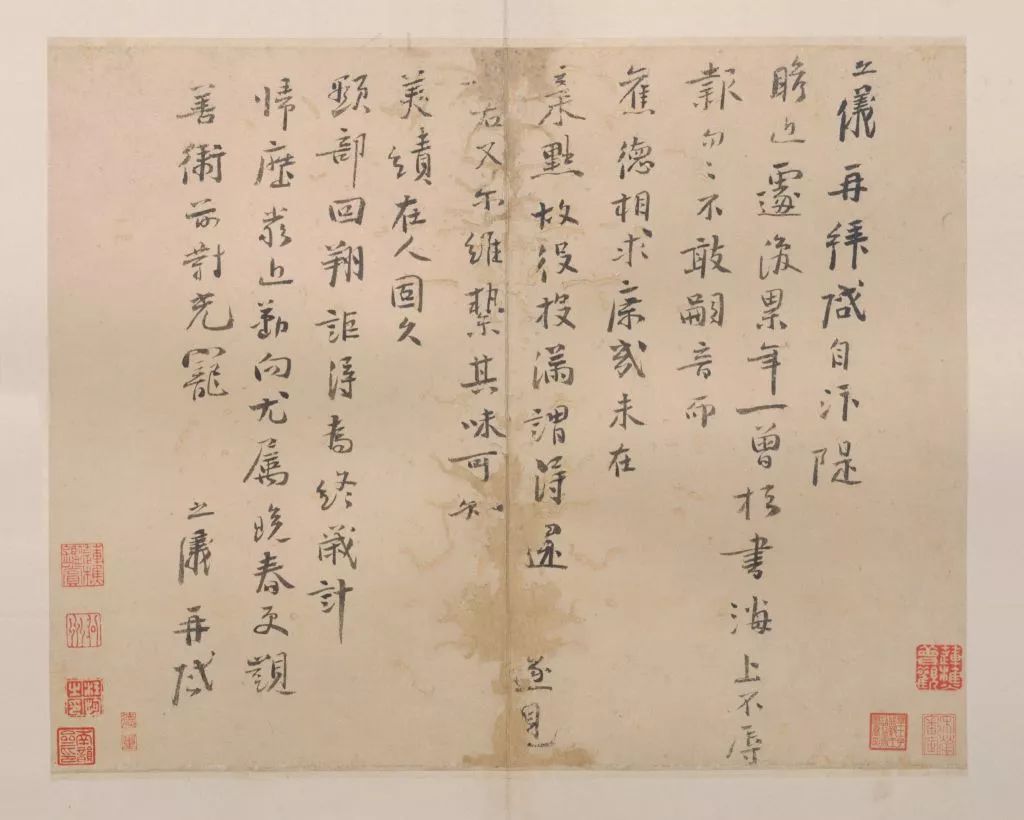 之儀再拜啟自汴隄
瞻近遽後累年一曾於書海上不辱
報勿勿不敢嗣音而
舊德相求庶或未在
棄黜故役投滿謂得還 遂見
左右又尓維縶其味可知
美績在人固久
顯部回翔詎得為終歲計
歸 近勤向尤屬晚春更覬
善衛前對光寵 之儀再啟